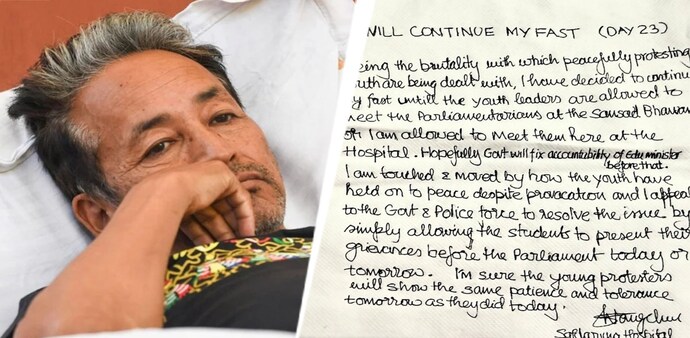 WILL CONTINUE MY FAST (DAY 23)
eing the brutality with which peacefully protesting
uth are being dealt with, I have decided to continue
y fast untill the youth leaders are allowed to
meet the Parliamentarians at the Sansad Bhawan
or I am allowed to meet them here at the
Hospital. Hopefully Govt will fix accountability of Edu minister
before that.
I am touched & moved by how the youth have
held on to peace despite provocation and I appeal
to the Govt & Police force to resolve the issue by
simply allowing the students to present their
grievances before the Parliament today or
tomorrow. I'm sure the young protesters
will show the same patience and tolerance
tomorrow as they did today.
Hospital